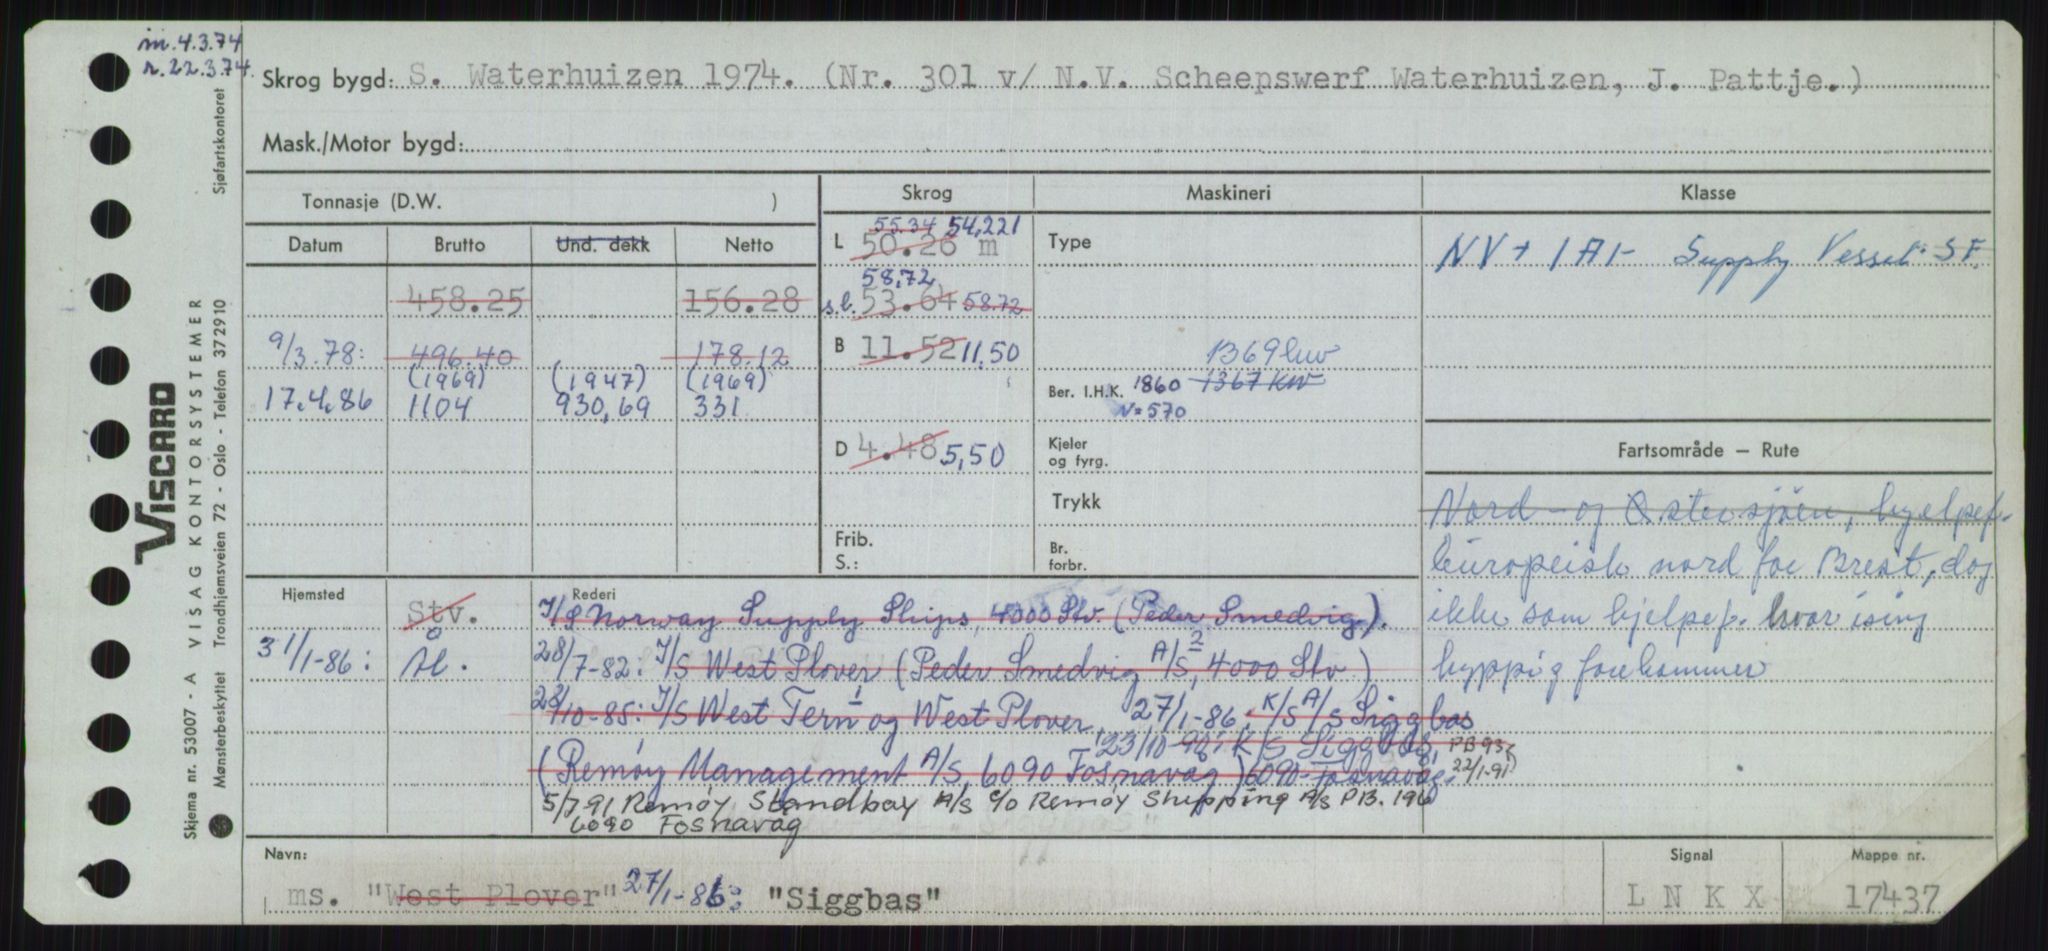 m. 4.3.74
r. 22.3.74
Skrog bygd: S. Waterhuizen 1974. (Nr. 301 v/ N.V. Scheepswerf Waterhuizen, J. Pattje.)
Mask./Motor bygd:
Tonnasje (D.W. )
Skrog
Maskineri
Klasse
Datum
Brutto
Und. dekk
Netto
458.25
156.28
9/3.78:
496.40
178.12
(1969)
(1947)
(1969)
17.4.86
1104
930,69
331
55.34 54,221
L 50.26 m
58,72
s.l. 53.64 58.72
B 11.52 11,50
D 4.48 5,50
Frib.
S.:
Type
1369 kw
Ber. I.H.K. 1860 1367 KW
N=570
Kjeler
og fyrg.
Trykk
Br.
forbr.
NV + 1A1- Supply Vessel. SF.
Fartsområde – Rute
Nord- og Østersjøen, hjelpef.
Europeisk nord for Brest, dog
ikke som hjelpef. hvor ising
hyppig forekommer
Hjemsted
Stv.
31/1-86: Ål.
Rederi
I/S Norway Supply Ships, 4000 Stv. (Peder Smedvig).
28/7-82: I/S West Plover (Peder Smedvig A/S, 4000 Stv) 2
28/10-85: I/S West Tern 1 og West Plover, 27/1-86: K/S A/S Siggbas
23/10-90: K/S Siggbas, PB 93,
(Remøy Management A/S, 6090 Fosnavåg) 6090 Fosnavåg, 22/1-91)
5/7.91 Remøy Standbay A/S c/o Remøy Shipping A/S P.B. 196
6090 Fosnavåg
Navn:
ms. "West Plover" 27/1-86: "Siggbas"
Signal
LNKX
Mappe nr.
17437
VISCARD
Skjema nr. 53007 - A VISAG KONTORSYSTEMER Sjøfartskontoret
Mønsterbeskyttet Trondhjemsveien 72 - Oslo - Telefon 372910